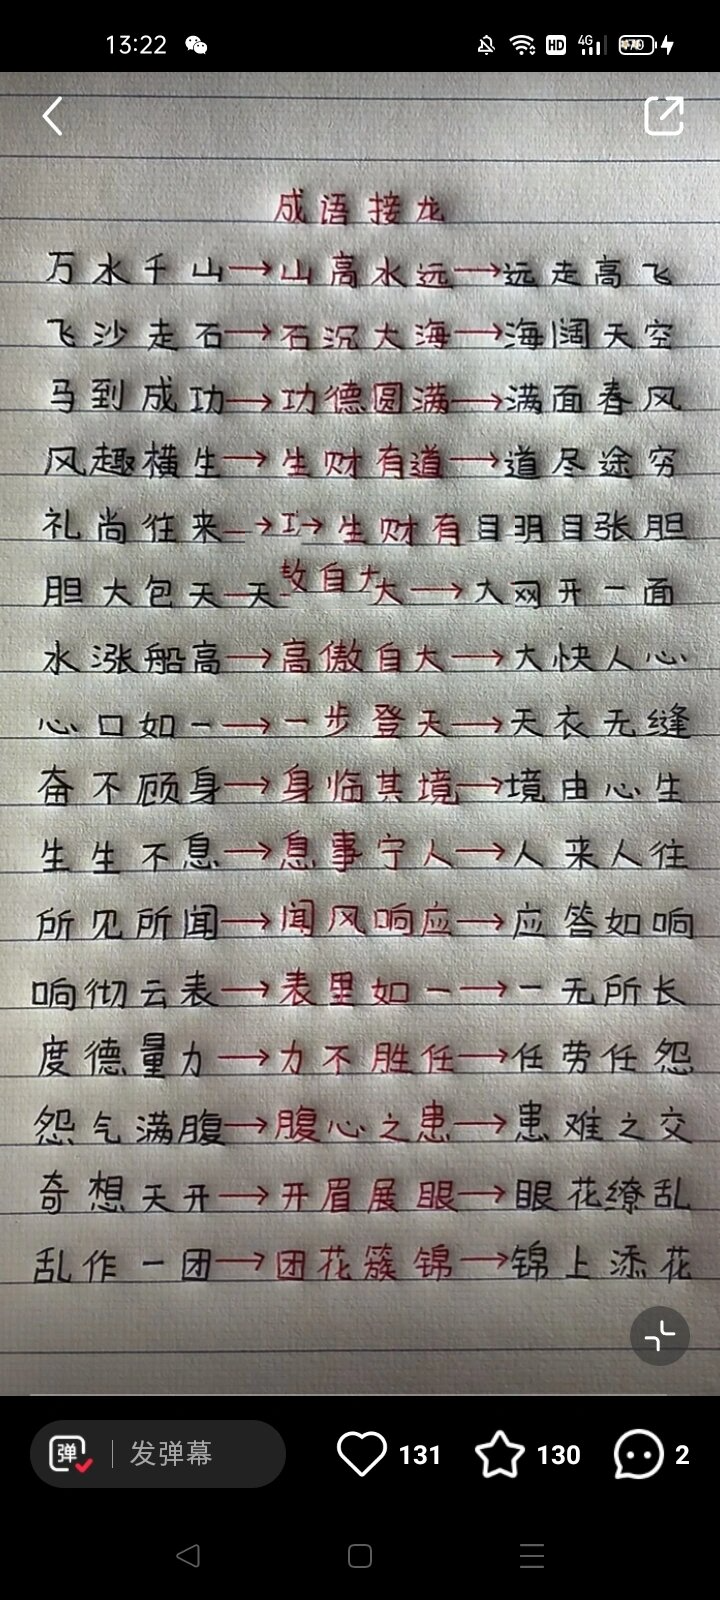 13:22
HD 4G 70
成语接龙
万水千山→山高水远→远走高飞
飞沙走石→石沉大海→海阔天空
马到成功→功德圆满→满面春风
风趣横生→生财有道→道尽途穷
礼尚往来→→生财有目明目张胆
胆大包天天敖自大大→大网开一面
水涨船高→高傲自大→大快人心
心口如一→一步登天→天衣无缝
奋不顾身→身临其境→境由心生
生生不息→息事宁人→人来人往
所见所闻→闻风响应→应答如响
响彻云表→表里如一→一无所长
度德量力→力不胜任→任劳任怨
怨气满腹→腹心之患→患难之交
奇想天开→开眉展眼→眼花缭乱
乱作一团→团花簇锦→锦上添花
弹 发弹幕 131 130 2